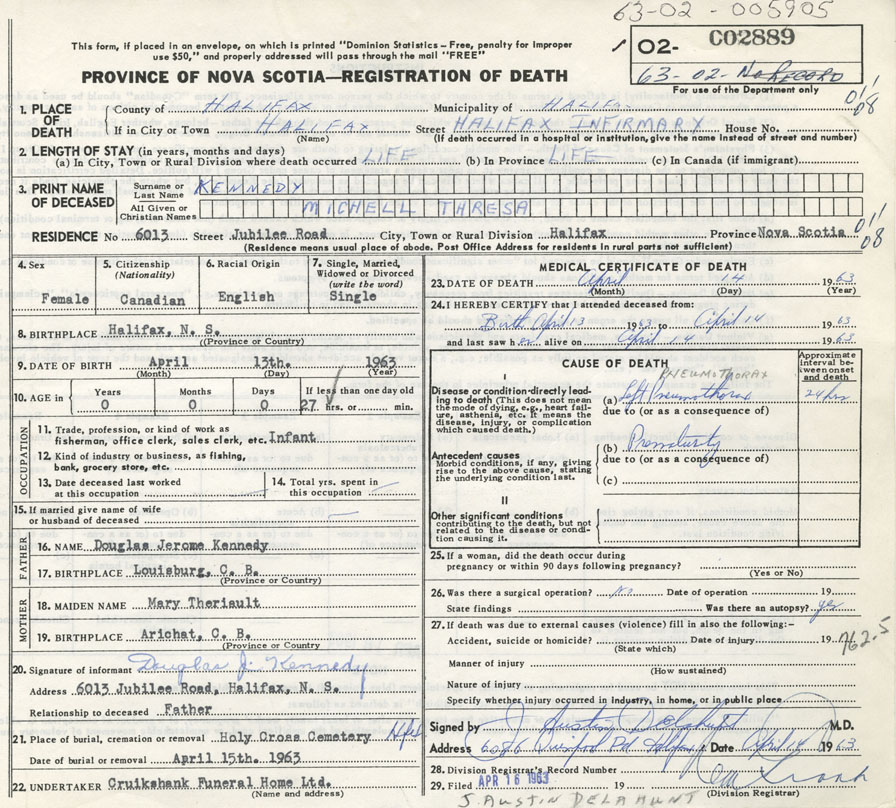 63-02-005905
This form, if placed in an envelope, on which is printed "Dominion Statistics - Free, penalty for improper
use $50," and properly addressed will pass through the mail "FREE"
02- C02889
63-02-No RECORD
PROVINCE OF NOVA SCOTIA—REGISTRATION OF DEATH
For use of the Department only
1. PLACE OF DEATH { County of HALIFAX Municipality of HALIFAX
If in City or Town HALIFAX Street HALIFAX INFIRMARY House No.
(Name) (If death occurred in a hospital or institution, give the name instead of street and number)
2. LENGTH OF STAY (in years, months and days)
(a) In City, Town or Rural Division where death occurred LIFE (b) In Province LIFE (c) In Canada (if immigrant)
3. PRINT NAME OF DECEASED { Surname or Last Name KENNEDY
All Given or Christian Names MICHELL THRESA
RESIDENCE No 6013 Street Jubilee Road City, Town or Rural Division Halifax Province Nova Scotia
(Residence means usual place of abode. Post Office Address for residents in rural parts not sufficient)
4. Sex
Female
5. Citizenship (Nationality)
Canadian
6. Racial Origin
English
7. Single, Married, Widowed or Divorced (write the word)
Single
8. BIRTHPLACE Halifax, N. S.
(Province or Country)
9. DATE OF BIRTH April 13th. 1963
(Month) (Day) (Year)
10. AGE in { Years Months Days If less than one day old
0 0 0 27 hrs. or min.
OCCUPATION
11. Trade, profession, or kind of work as
fisherman, office clerk, sales clerk, etc. Infant
12. Kind of industry or business, as fishing,
bank, grocery store, etc.
13. Date deceased last worked at this occupation
14. Total yrs. spent in this occupation
15. If married give name of wife
or husband of deceased
FATHER
16. NAME Douglas Jerome Kennedy
17. BIRTHPLACE Louisburg, C. B.
(Province or Country)
MOTHER
18. MAIDEN NAME Mary Theriault
19. BIRTHPLACE Arichat, C. B.
(Province or Country
20. Signature of informant Douglas J. Kennedy
Address 6013 Jubilee Road, Halifax, N. S.
Relationship to deceased Father
21. Place of burial, cremation or removal Holy Cross Cemetery Hfx
Date of burial or removal April 15th. 1963
22. UNDERTAKER Cruikshank Funeral Home Ltd.
(Name and address)
MEDICAL CERTIFICATE OF DEATH
23. DATE OF DEATH April 14 1963
(Month) (Day) (Year)
24. I HEREBY CERTIFY that I attended deceased from:
Birth April 13 1963 to April 14 1963
and last saw her alive on April 14 1963
CAUSE OF DEATH
Approximate interval between onset and death
I
PNEUMOTHORAX
Disease or condition directly leading to death (This does not mean
the mode of dying, e.g., heart failure, asthenia, etc. It means the
disease, injury, or complication
which caused death.)
(a) left pneumothorax 24 hrs
due to (or as a consequence of)
Antecedent causes
Morbid conditions, if any, giving
rise to the above cause, stating
the underlying condition last.
(b) Prematurity
due to (or as a consequence of)
(c)
II
Other significant conditions
contributing to the death, but not
related to the disease or condition causing it.
25. If a woman, did the death occur during
pregnancy or within 90 days following pregnancy?
(Yes or No)
26. Was there a surgical operation? No Date of operation 19
State findings Was there an autopsy? yes
27. If death was due to external causes (violence) fill in also the following:—
Accident, suicide or homicide? Date of injury 19
(State which)
762.5
Manner of injury
(How sustained)
Nature of injury
Specify whether injury occurred in industry, in home, or in public place
Signed by J. Austin Delahunt M.D.
Address 6086 Rd Halifax Date April 14 1963
28. Division Registrar's Record Number
29. Filed APR 16 1963 19
(Division Registrar)
J. AUSTIN DELAHUNT